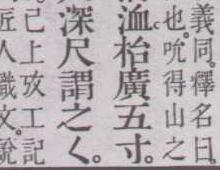 義同。釋名曰。
也。吮得山之
洫枱廣五寸。
深尺謂之く。
已上攷工記
匠人職文。說